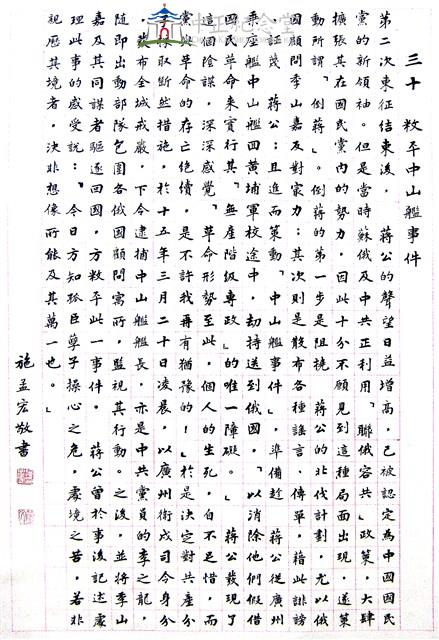 中正紀念堂
三十 敉平中山艦事件
第二次東征結束後，蔣公的聲望日益增高，已被認定為中國國民
黨的新領袖。但是當時蘇俄及中共正利用「聯俄容共」政策，大肆
擴張其在國民黨內的勢力，因此十分不願見到這種局面出現，遂策
動所謂「倒蔣」。倒蔣的第一步是阻撓 蔣公的北伐計劃，尤以俄
國顧問季山嘉反對最力；其次則是散布各種謠言、傳單，藉此誹謗
、詆譭 蔣公；且進而策動「中山艦事件」，準備趁 蔣公從廣州
乘座艦中山艦回黃埔軍校途中，劫持送到俄國，「以消除他們假借
國民革命來實行其『無產階級專政』的唯一障礙。」 蔣公發現了
這個陰謀，深深感覺「革命形勢至此，個人的生死，自不足惜，而
黨與革命的存亡絕續，是不許我再有猶豫的！」於是決定對共產分
子採取斷然措施，於十五年三月二十日凌晨，以廣州衛戍司令身分
，宣布全城戒嚴，下令逮捕中山艦艦長，亦是中共黨員的李之龍，
隨即出動部隊包圍各俄國顧問寓所，監視其行動。之後，並將季山
嘉及其同謀者驅逐回國，方敉平此一事件。 蔣公曾於事後記述處
理此事的感受說：「今日方知孤臣孽子操心之危，處境之苦，若非
視歷其境者，決非想像所能及其萬一也。」
施孟宏敬書